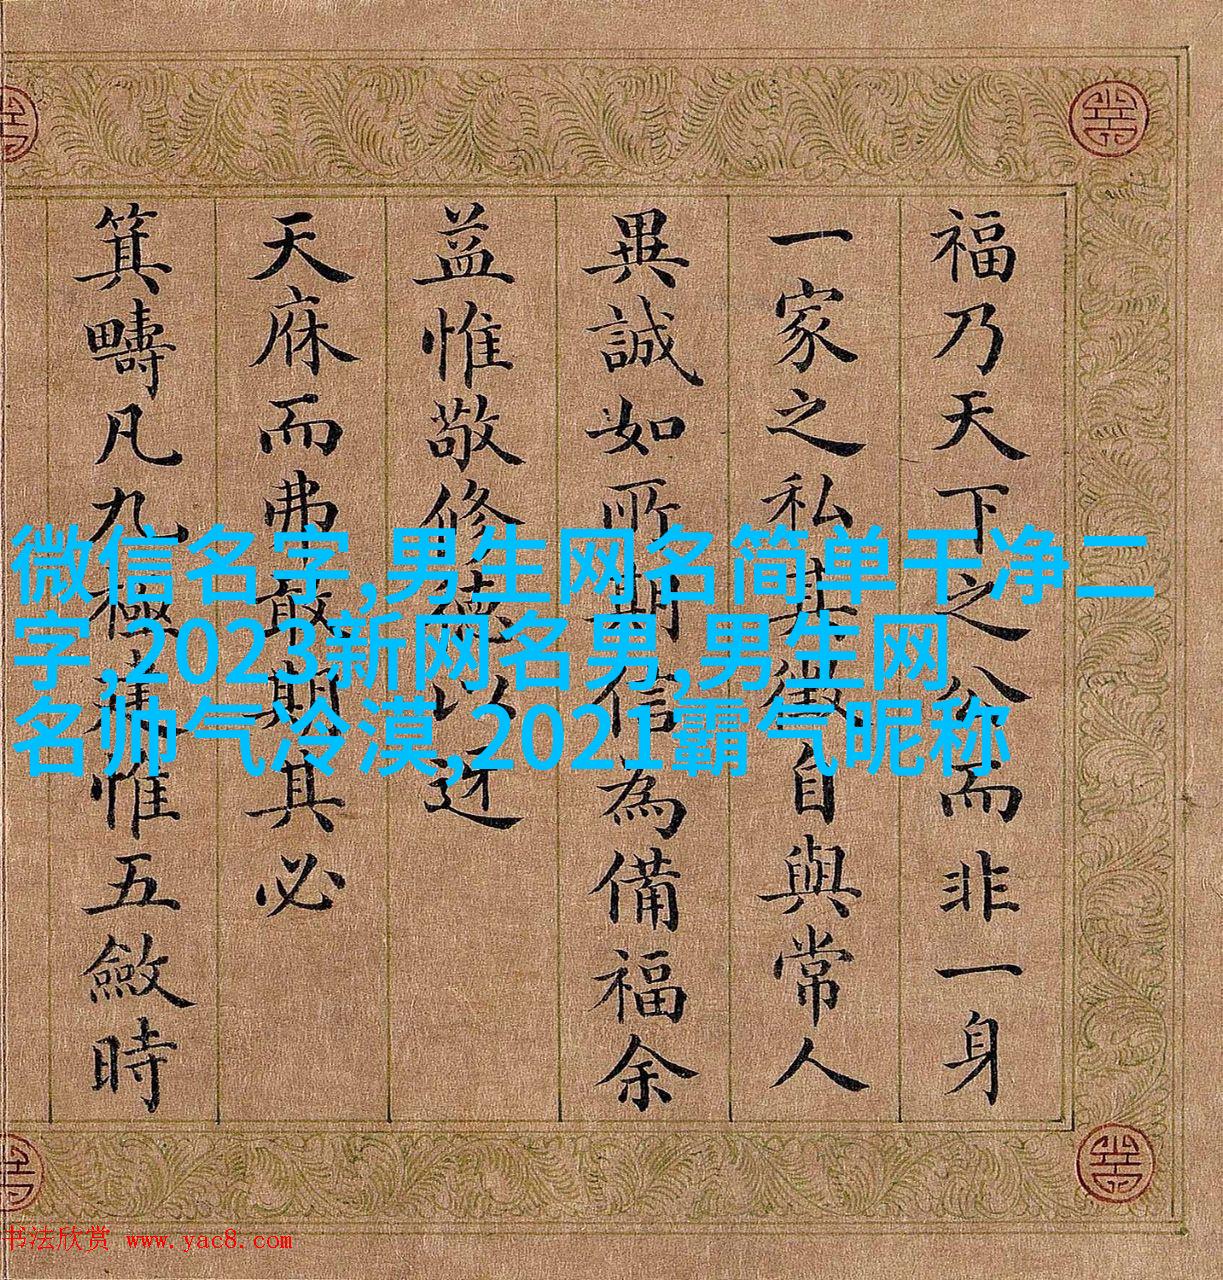 福乃天下之公而非一身
一家之私其徵自與常人
異誠如所期信為備福余
益惟敬修德以迓
天庥而弗敢期其必
箕疇凡九極建惟五斂時
微信名字,男生网名简单干净二
字,2023新网名男,男生网
名帅气冷漠,2021霸气昵称
书法欣赏 www.yac8.com